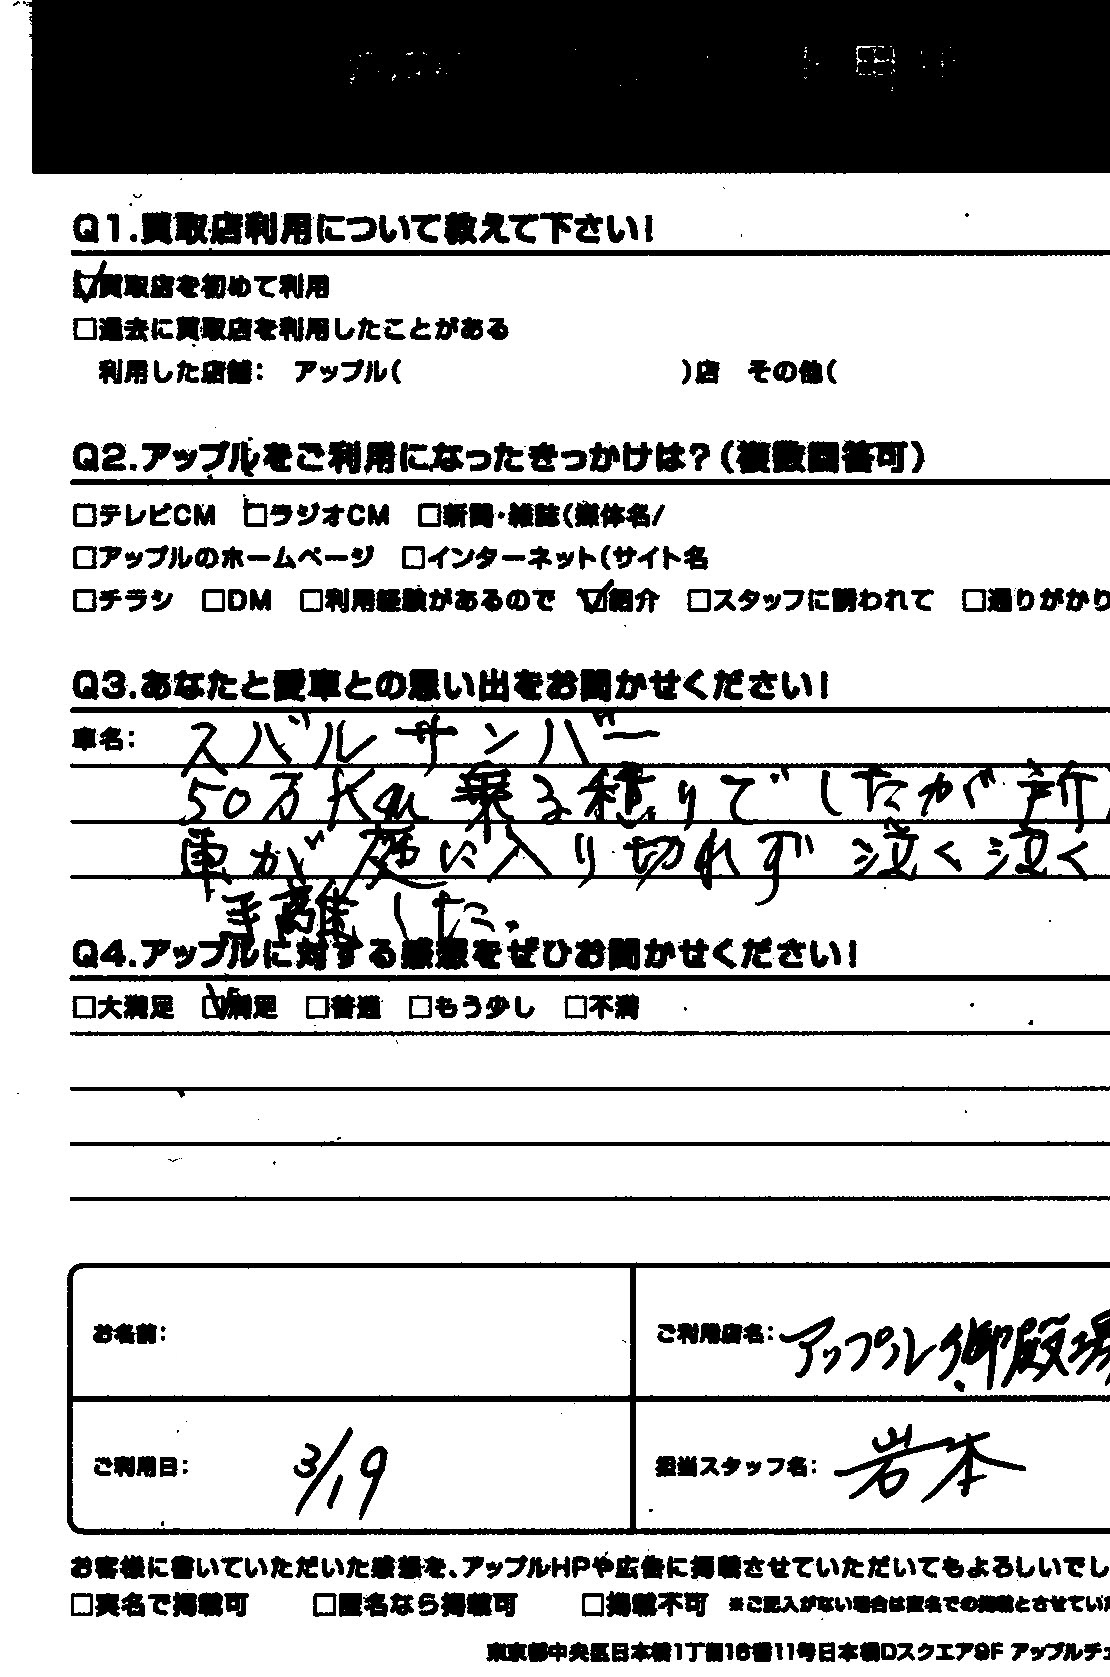 Q1.買取店利用について教えて下さい!
☑買取店を初めて利用
□過去に買取店を利用したことがある
利用した店舗: アップル( )店 その他(
Q2.アップルをご利用になったきっかけは?(複数回答可)
□テレビCM □ラジオCM □新聞・雑誌(媒体名/
□アップルのホームページ □インターネット(サイト名
□チラシ □DM □利用経験があるので ☑紹介 □スタッフに誘われて □通りがかり
Q3.あなたと愛車との思い出をお聞かせください!
車名: スバル サンバー
50万km 乗る積りでしたが 所
車が 庭に入り切れず 泣く泣く
手離した.
Q4.アップルに対する感想をぜひお聞かせください!
□大満足 ☑満足 □普通 □もう少し □不満
お名前:
ご利用店名: アップル御殿場
ご利用日: 3/19
担当スタッフ名: 岩本
お客様に書いていただいた感想を、アップルHPや広告に掲載させていただいてもよろしいでし
□実名で掲載可 □匿名なら掲載可 □掲載不可 ※ご記入がない場合は匿名での掲載とさせていた
東京都中央区日本橋1丁目16番11号日本橋Dスクエア9F アップルチェ